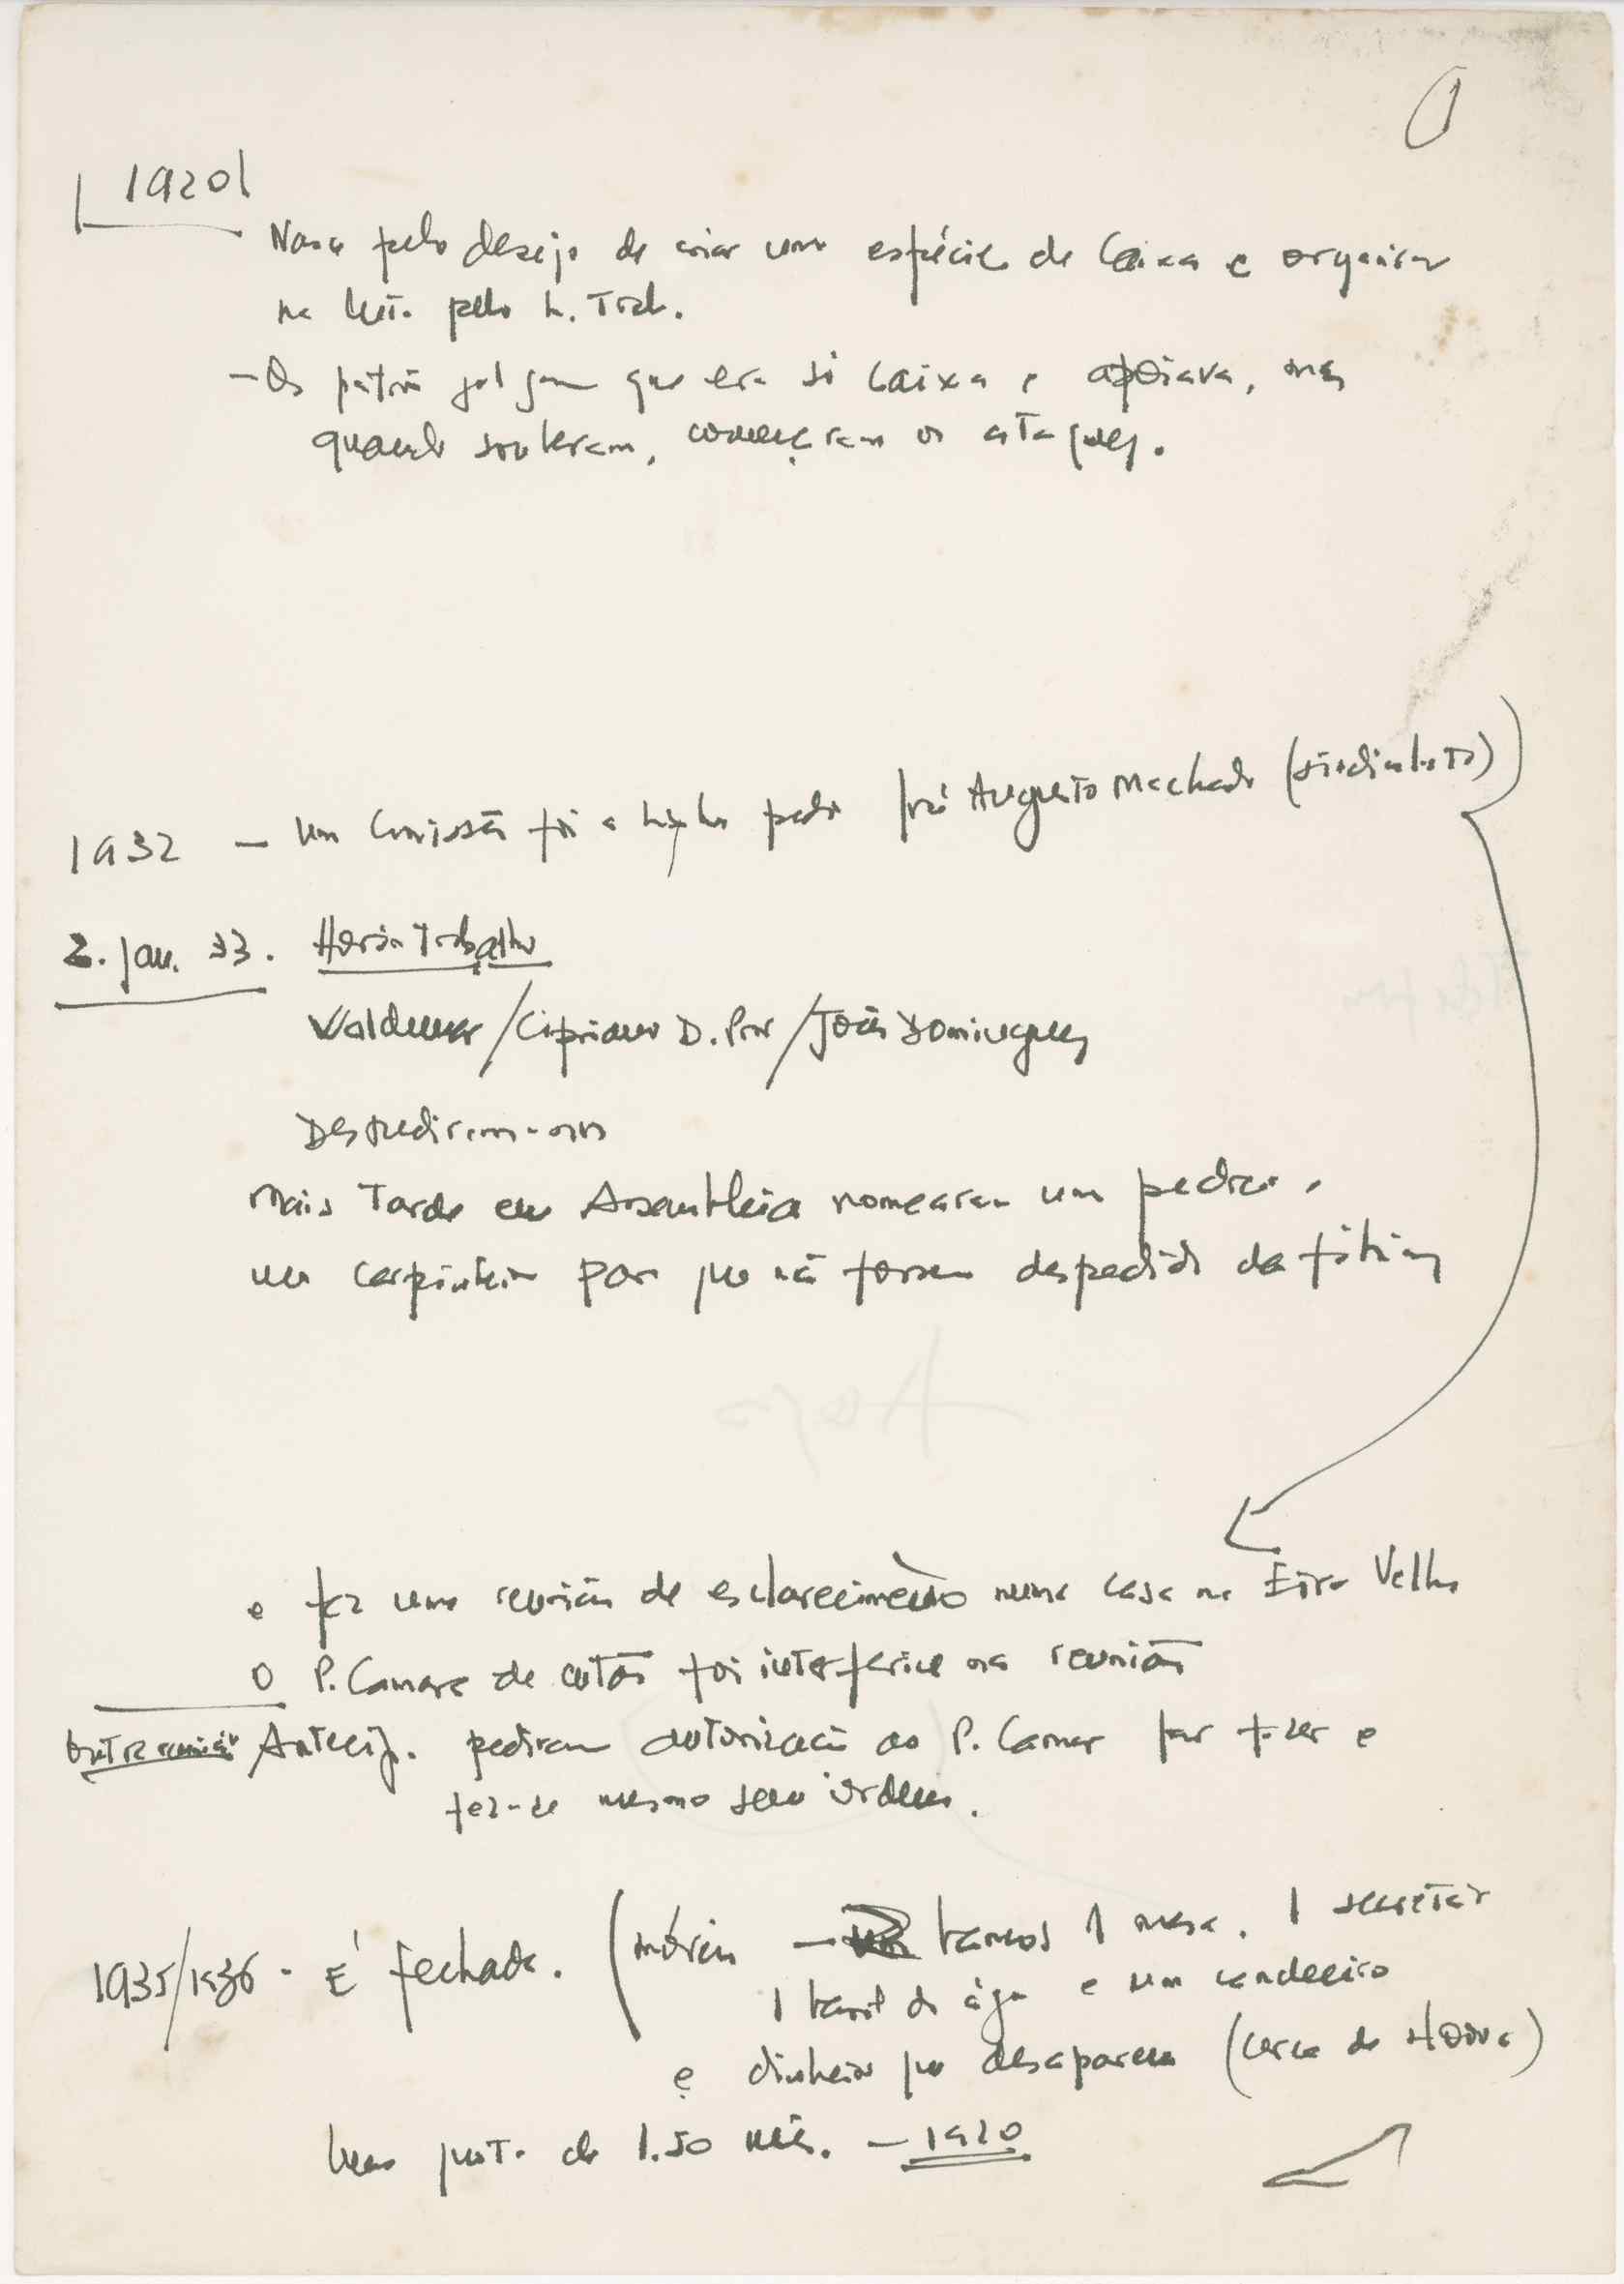 1920
Nasce pelo desejo de criar uma espécie de Caixa e organizar
na luta pelo h. Trab.
- Os patrões julgam que era só caixa e apoiava, mas
quando souberam, começaram os ataques.
1932 - Um Comissão foi a Lisboa pedir José Augusto Machado (sindicalista)
2. Jan. 33. Horário Trabalho
Valdemar / Cipriano D. Pon / João Domingues
Despediram-nos
Mais Tarde em Assembleia nomearam um pedreiro e
um carpinteiro para que não fossem despedidos da fábrica
e fez uma reunião de esclarecimento numa casa na Eira Velha
O P. Camara de então foi interferir na reunião
Outra reunião Antecip. pediram autorização ao P. Camara para fazer e
fez-se mesmo sem ordem.
1935/1936 - É fechada. (móveis - bancos 1 mesa. 1 secretária
1 barril de água e um candeeiro
e dinheiro que desapareceu (cerca de )
Uma quota de 1.50 mês. - 1920